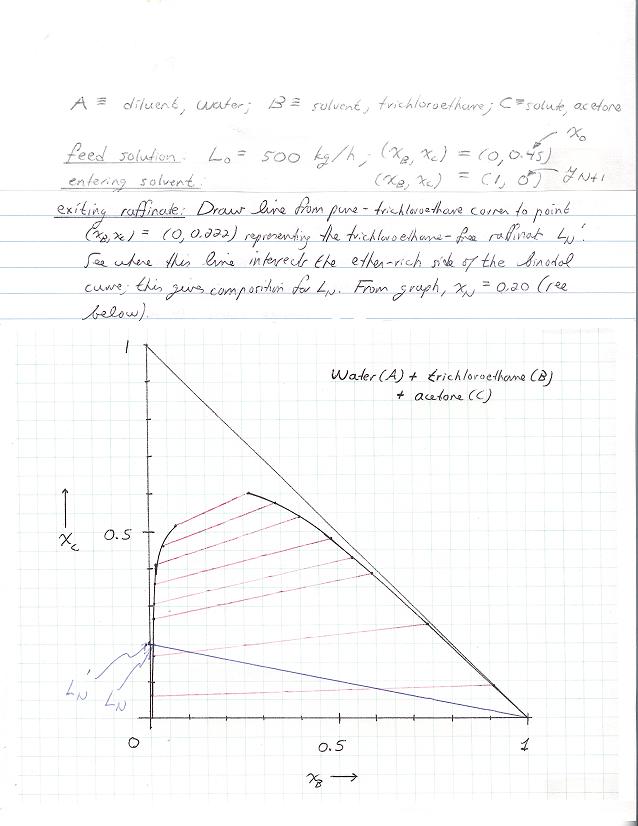 A ≡ diluent, water; B ≡ solvent, trichloroethane; C ≡ solute, acetone
x₀
feed solution: L₀ = 500 kg/h; (x_B, x_C) = (0, 0.45)
entering solvent: (x_B, x_C) = (1, 0) y_N+1
exiting raffinate: Draw line from pure-trichloroethane corner to point
(x_B, x_C) = (0, 0.222) representing the trichloroethane-free raffinate L_N'.
See where this line intersects the ether-rich side of the binodal
curve; this gives composition for L_N. From graph, x_N = 0.20 (see
below).
1
Water (A) + trichloroethane (B)
+ acetone (C)
x_C
0.5
L_N'
L_N
0
0.5
1
x_B